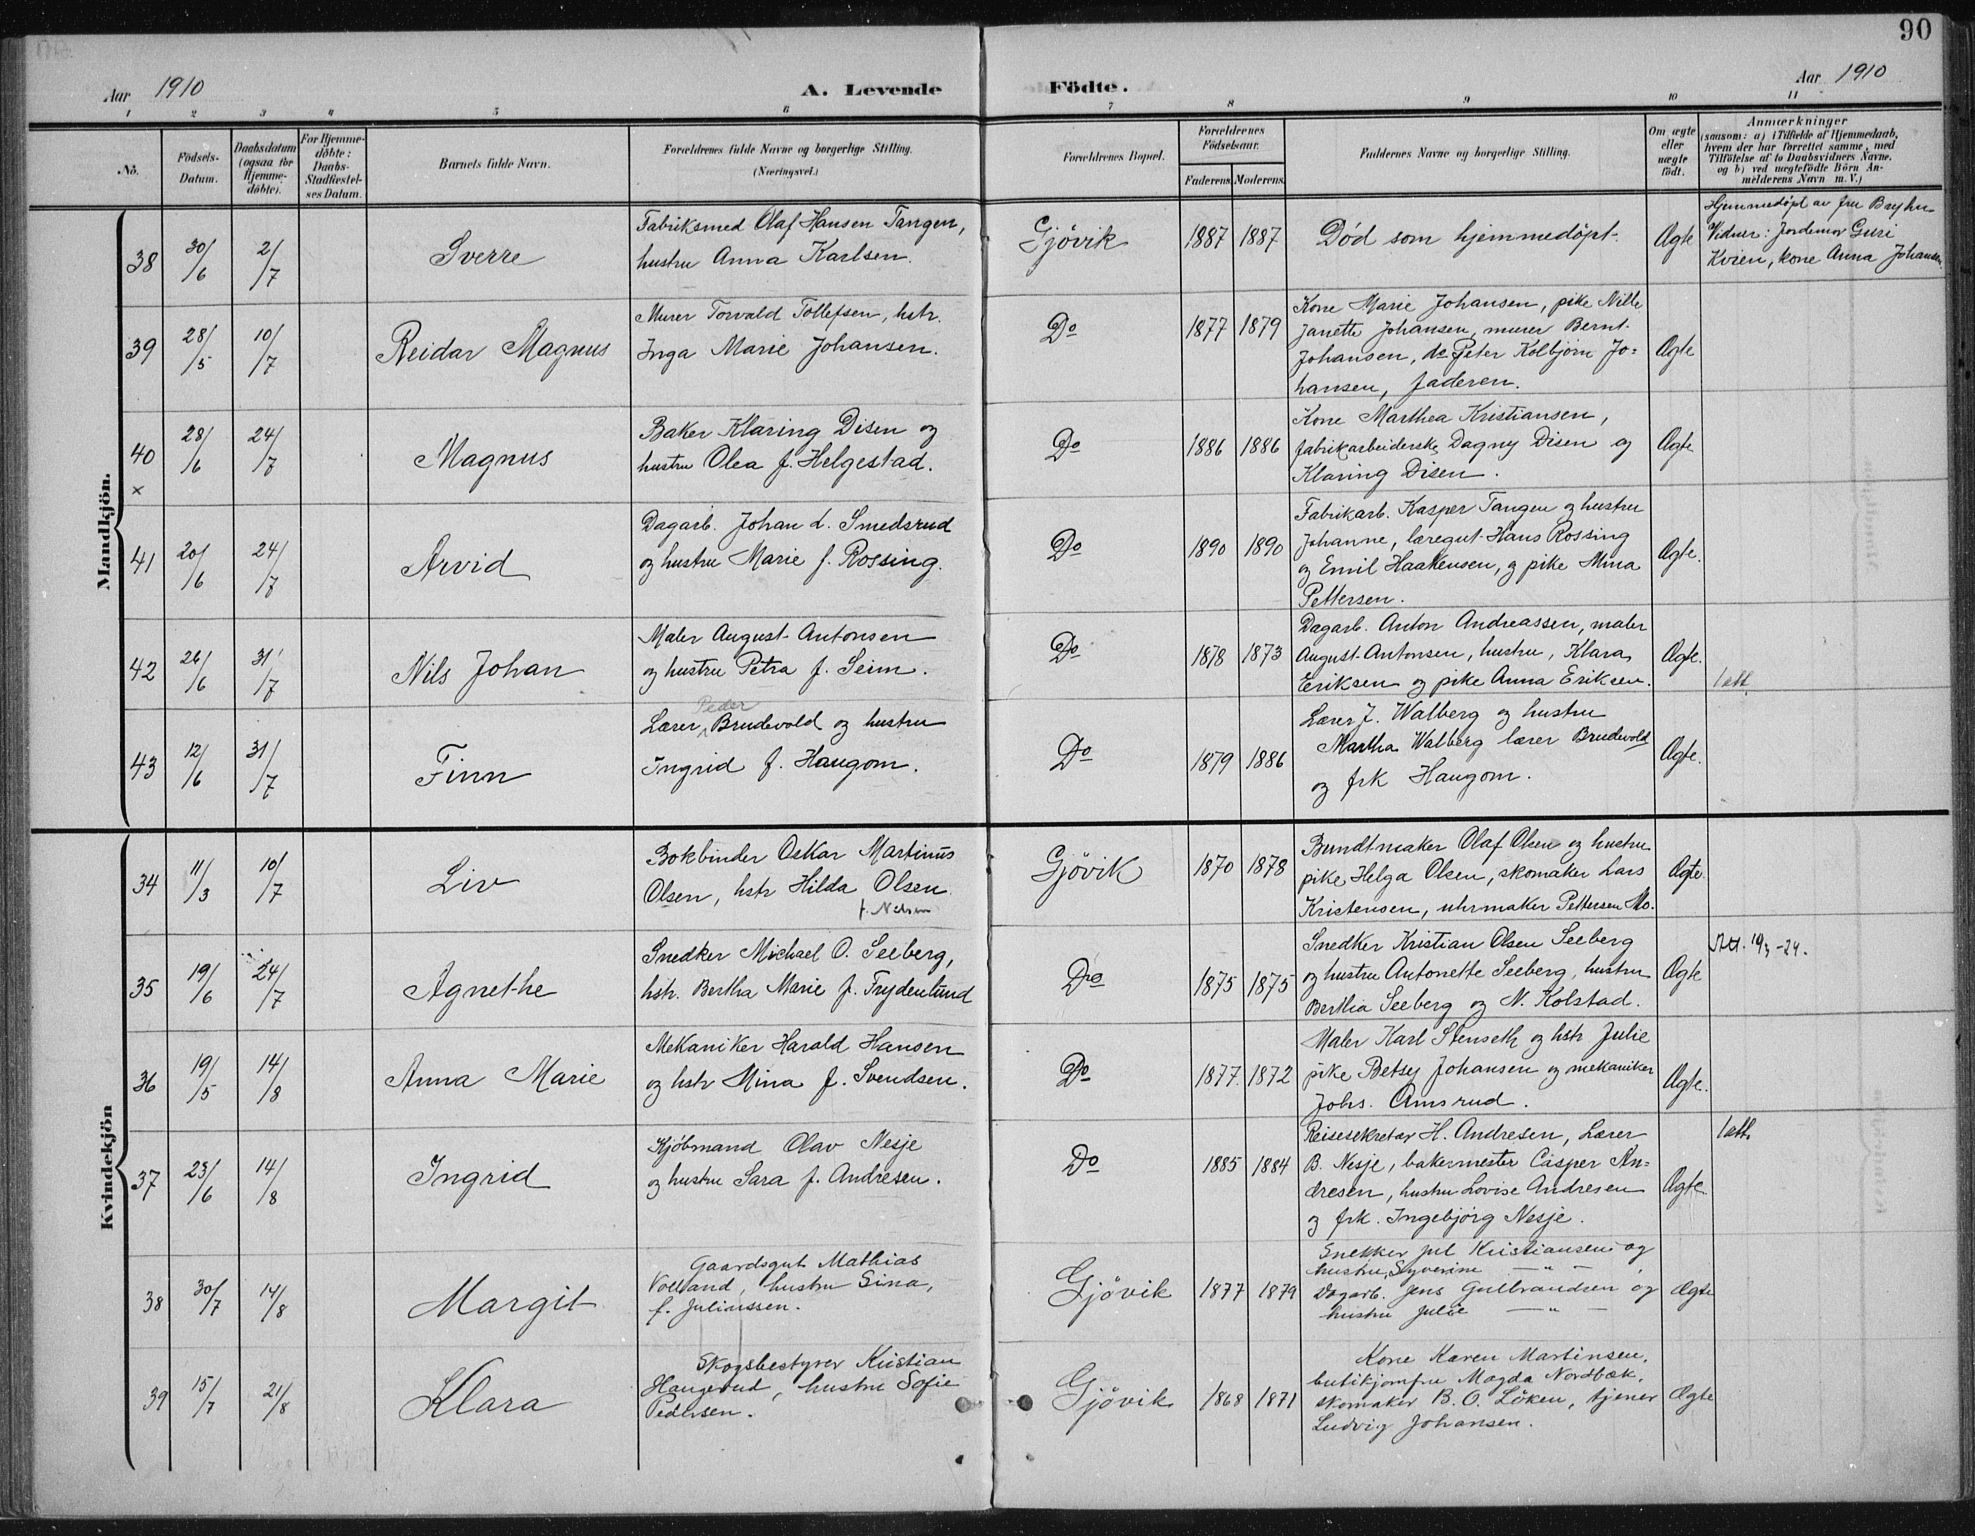 90
Aar 1910
A. Levende
Födte.
Aar 1910
1 2 3 4 5 6 7 8 9 10 11
No.
Födsels-
Datum.
Daabsdatum
(ogsaa for
Hjemme-
döbte).
For Hjemme-
döbte:
Daabs-
Stadfæstel-
ses Datum.
Barnets fulde Navn.
Forældrenes fulde Navne og borgerlige Stilling.
(Næringsvei.)
Forældrenes Bopæl.
Forældrenes
Födselsaar.
Faderens. Moderens.
Faddernes Navne og borgerlige Stilling.
Om ægte
eller
uægte
födt.
Anmærkninger
(saasom: a) i Tilfælde af Hjemmedaab,
hvem der har forrettet samme, med
Tilföielse af to Daabsvidners Navne,
og b) ved uægtefödte Börn An-
melderens Navn m. V.)
Mandkjön.
38 30/6 2/7 Sverre
Fabriksmed Olaf Hansen Tangen,
hustru Anna Karlsen.
Gjövik 1887 1887 Död som hjemmedöpt. Ægte
Hjemmedöpt av fru Bryhn
Vidner: Jordemor Guri
Kvien, kone Anna Johansen
39 28/5 10/7 Reidar Magnus
Murer Torvald Tollefsen, hstr.
Inga Marie Johansen.
Do 1877 1879
Kone Marie Johansen, pike Nille
Janette Johansen, murer Bernt
Johansen, do Peter Kolbjörn Jo=
hansen, faderen.
Ægte
40 28/6 24/7 Magnus
x
Baker Klaring Disen og
hustru Olea f. Helgestad.
Do 1886 1886
Kone Marthea Kristiansen,
fabrikarbeiderske Dagny Disen og
Klaring Disen.
Ægte
41 20/6 24/7 Arvid
Dagarb. Johan L. Smedsrud
og hustru Marie f. Rossing.
Do 1890 1890
Fabrikarb. Kasper Tangen og hustru
Johanne, læregut Hans Rossing
og Emil Haakensen, og pike Mina
Pettersen.
Ægte.
42 26/6 31/7 Nils Johan
Maler August Antonsen
og hustru Petra f. Seim.
Do 1878 1873
Dagarb. Anton Andreassen, maler
August Antonsen, hustru, Klara
Eriksen og pike Anna Eriksen.
Ægte.
1 att.
43 12/6 31/7 Finn
Peder
Lærer Brudevold og hustru
Ingrid f. Haugom.
Do 1879 1886
Lærer J. Walberg og hustru
Martha Walberg lærer Brudevold
og frk Haugom.
Ægte.
Kvindekjön
34 11/3 10/7 Liv
Bokbinder Oskar Martinus
Olsen, hstr Hilda Olsen
f. Nilsen
Gjövik 1870 1878
Bundtmaker Olaf Olsen og hustru
pike Helga Olsen, skomaker Lars
Kristensen, uhrmaker Pettersen Mo.
Ægte.
35 19/6 24/7 Agnethe
Snedker Michael O. Seeberg,
hstr. Bertha Marie f. Frydenlund
Do 1875 1875
Snedker Kristian Olsen Seeberg
og hustru Antonette Seeberg, hustru
Bertha Seeberg og N. Kolstad.
Ægte
Att. 19/3-24.
36 19/5 14/8 Anna Marie
Mekaniker Harald Hansen
og hstr Mina f. Svendsen.
Do 1877. 1872
Maler Karl Stenseth og hstr Julie
pike Betsy Johansen og mekaniker
Johs. Amsrud.
Ægte.
37 23/6 14/8 Ingrid
Kjöbmand Olav Nesje
og hustru Sara f. Andresen.
Do 1885 1884
Reisesekretær H. Andresen, Lærer
B. Nesje, bakermester Casper An=
dresen, hustru Lovise Andresen
og frk. Ingebjörg Nesje.
Ægte.
1 att.
38 30/7 14/8 Margit
Gaardsgut Mathias
Volland, hustru Sina,
f. Julianssen.
Gjövik 1877 1879
Snekker Jul Kristiansen og
hustru, Syverine — " —,
Dagarb. Jens Gulbrandsen og
hustru Julie — " —
Ægte
39 15/7 21/8 Klara
Skogsbestyrer Kristian
Haugerud, hustru Sofie
Pedersen.
Gjövik 1868 1871
Kone Karen Martinsen,
butikjomfru Magda Nordbæk,
skomaker B. O. Löken, tjener
Ludvig Johansen.
Ægte